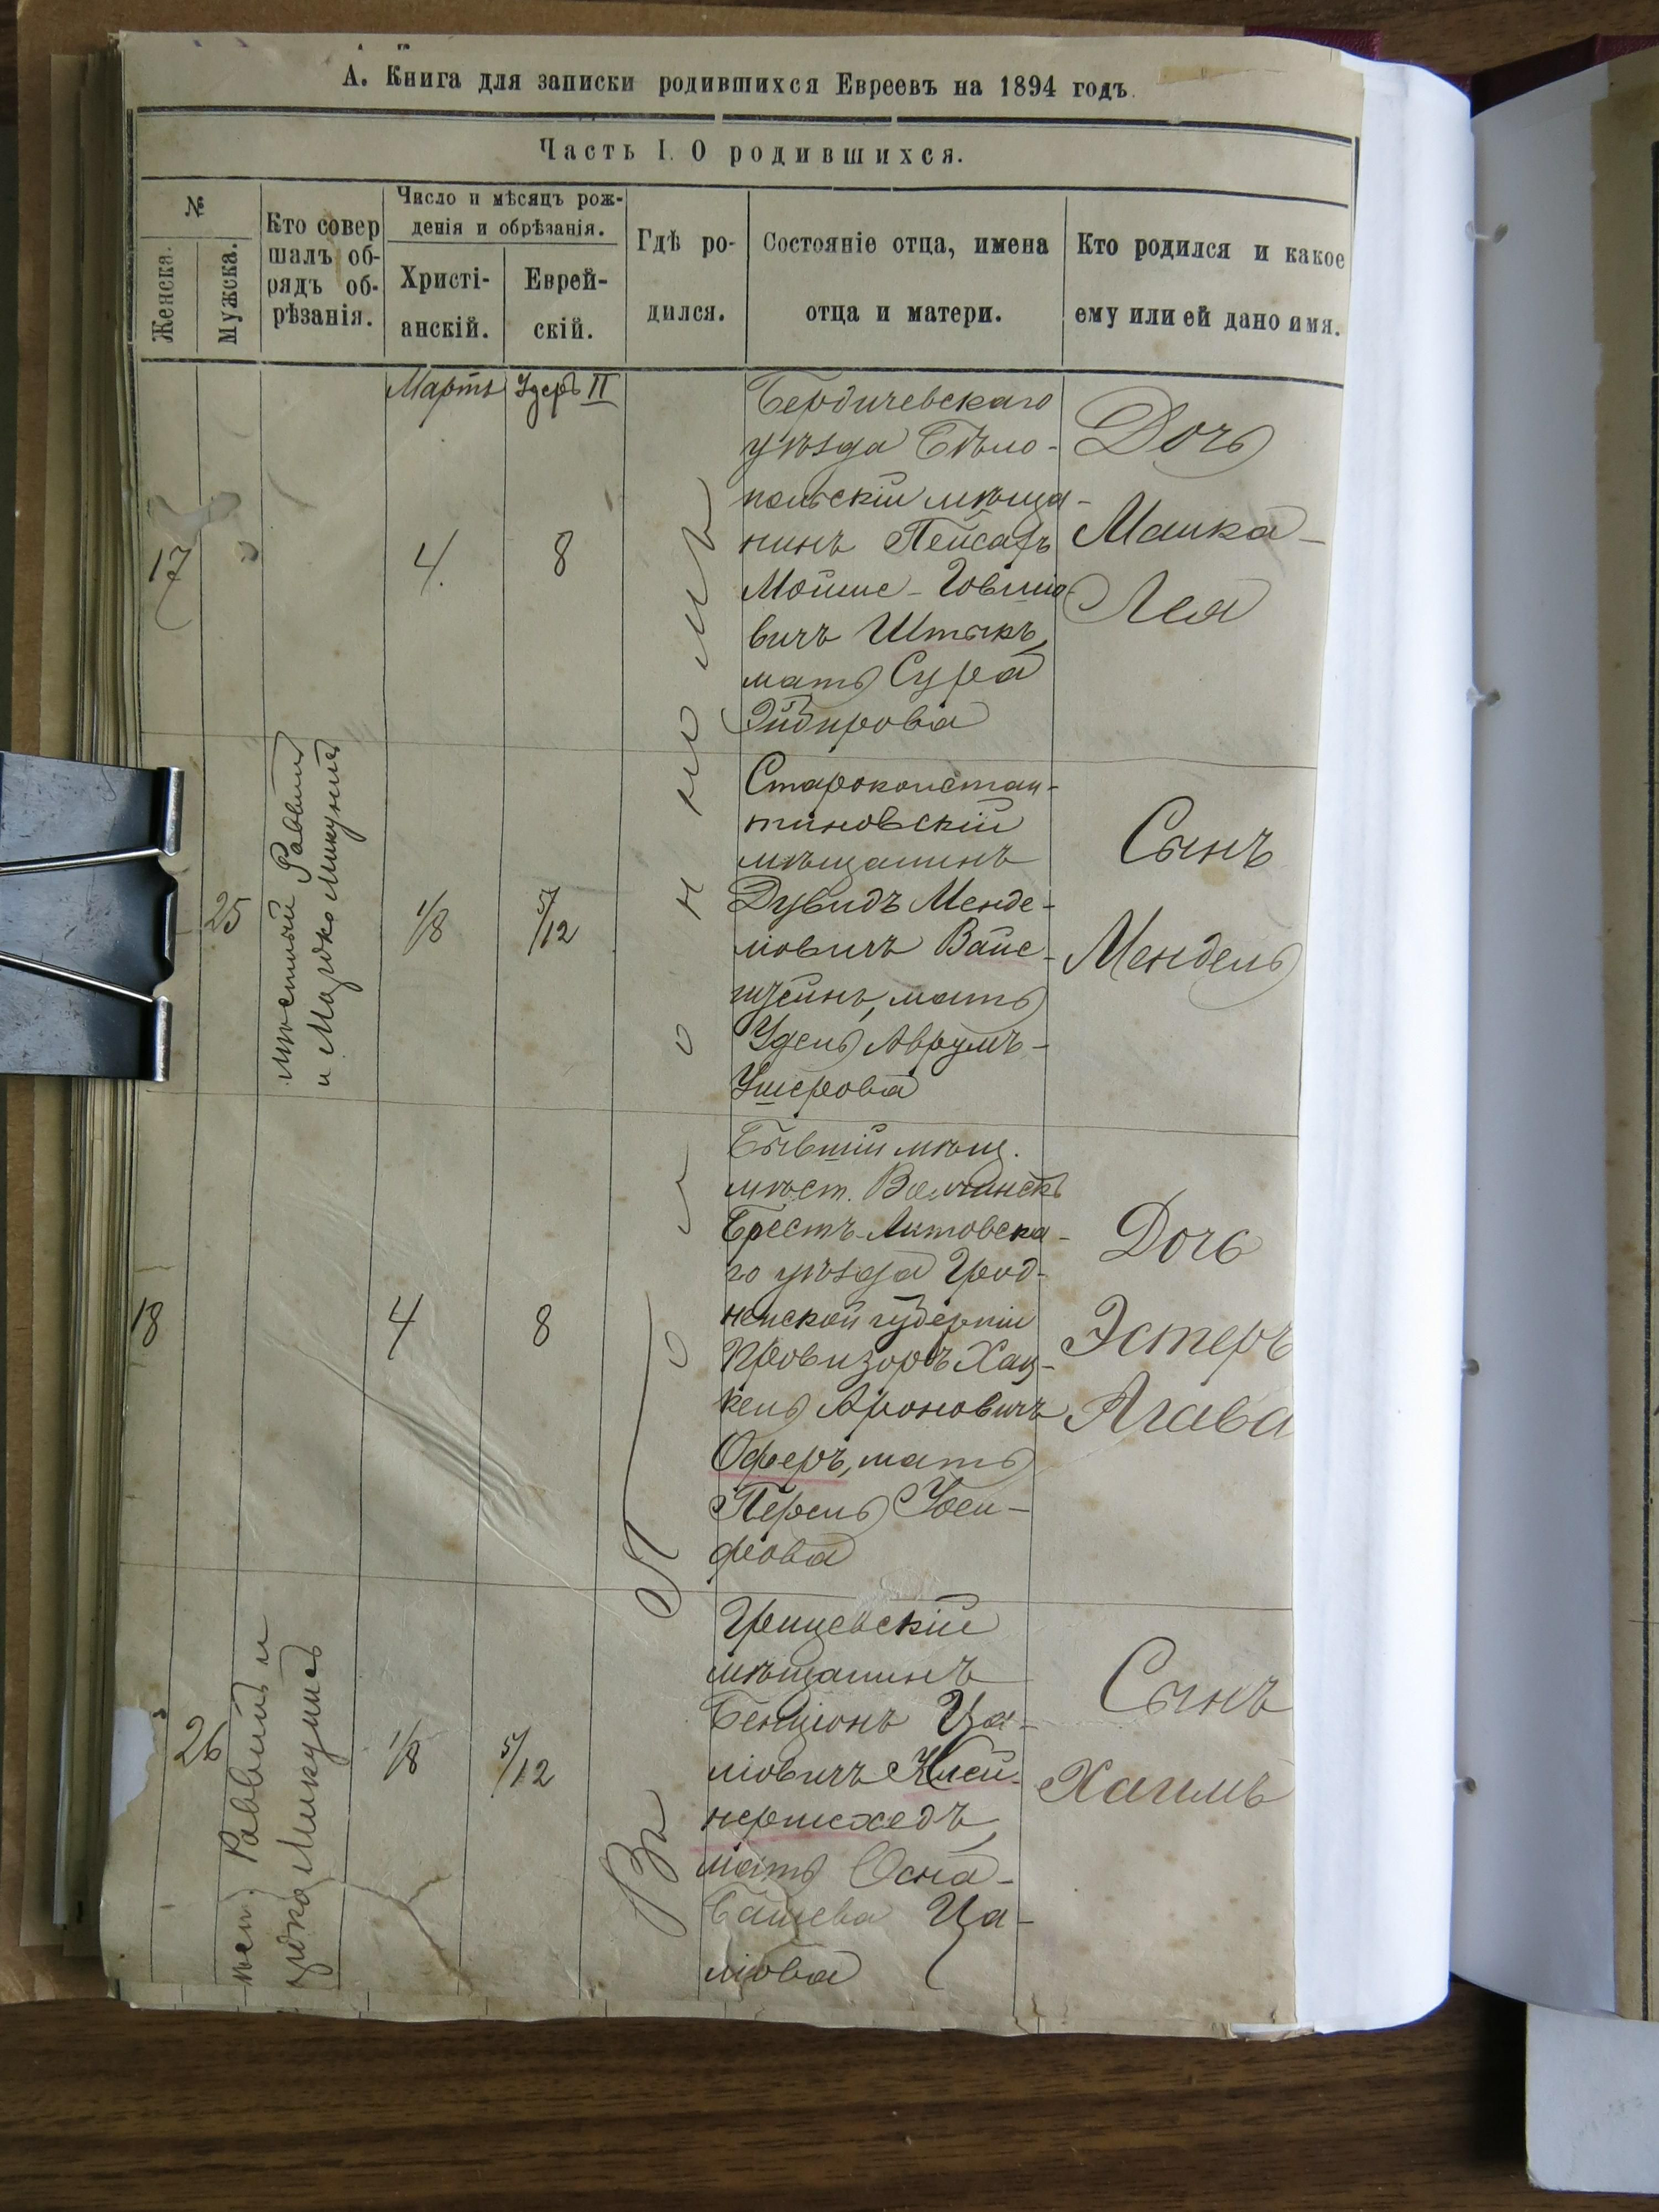 А. Книга для записки родившихся Евреевъ на 1894 годъ.
Часть I. О родившихся.
№
Женска.
Мужска.
Кто совер
шалъ об-
рядъ об-
рѣзанія.
Число и мѣсяцъ рож-
денія и обрѣзанія.
Христі-
анскій.
Еврей-
скій.
Гдѣ ро-
дился.
Состояніе отца, имена
отца и матери.
Кто родился и какое
ему или ей дано имя.
Мартъ
Удеръ II
17
4.
8
Бердичевскаго
уѣзда Бѣло-
польскій мѣща-
нинъ Пейсахъ
Мойше-Іовшіо
вичъ Штыкъ,
мать Сура
Дочь
Малка-
Лея
25
мѣстный Раввинъ
и
1/8
5/12
Староконстан-
тиновскій
мѣщанинъ
Дувидъ Менде-
ліовичъ Вайс-
штейнъ, мать
Удель Аврумъ-
Ушерова
Сынъ
Мендель
18
4
8
Бывшій мѣщ.
мѣст. Волчинскъ
Брестъ-Литовска-
го уѣзда Грод-
ненской губерніи
Провизоръ Хац-
кель Ароновичъ
Оферъ, мать
Перель Іоси-
фова
Дочь
Эстеръ
Агава
26
Раввинъ и
1/8
5/12
Грицевскій
мѣщанинъ
Бенціонъ Ца-
ліовичъ Клей-
нершехедъ,
мать Осна-
Башева Ца-
ліова
Сынъ
Хаимъ
Въ Полонномъ